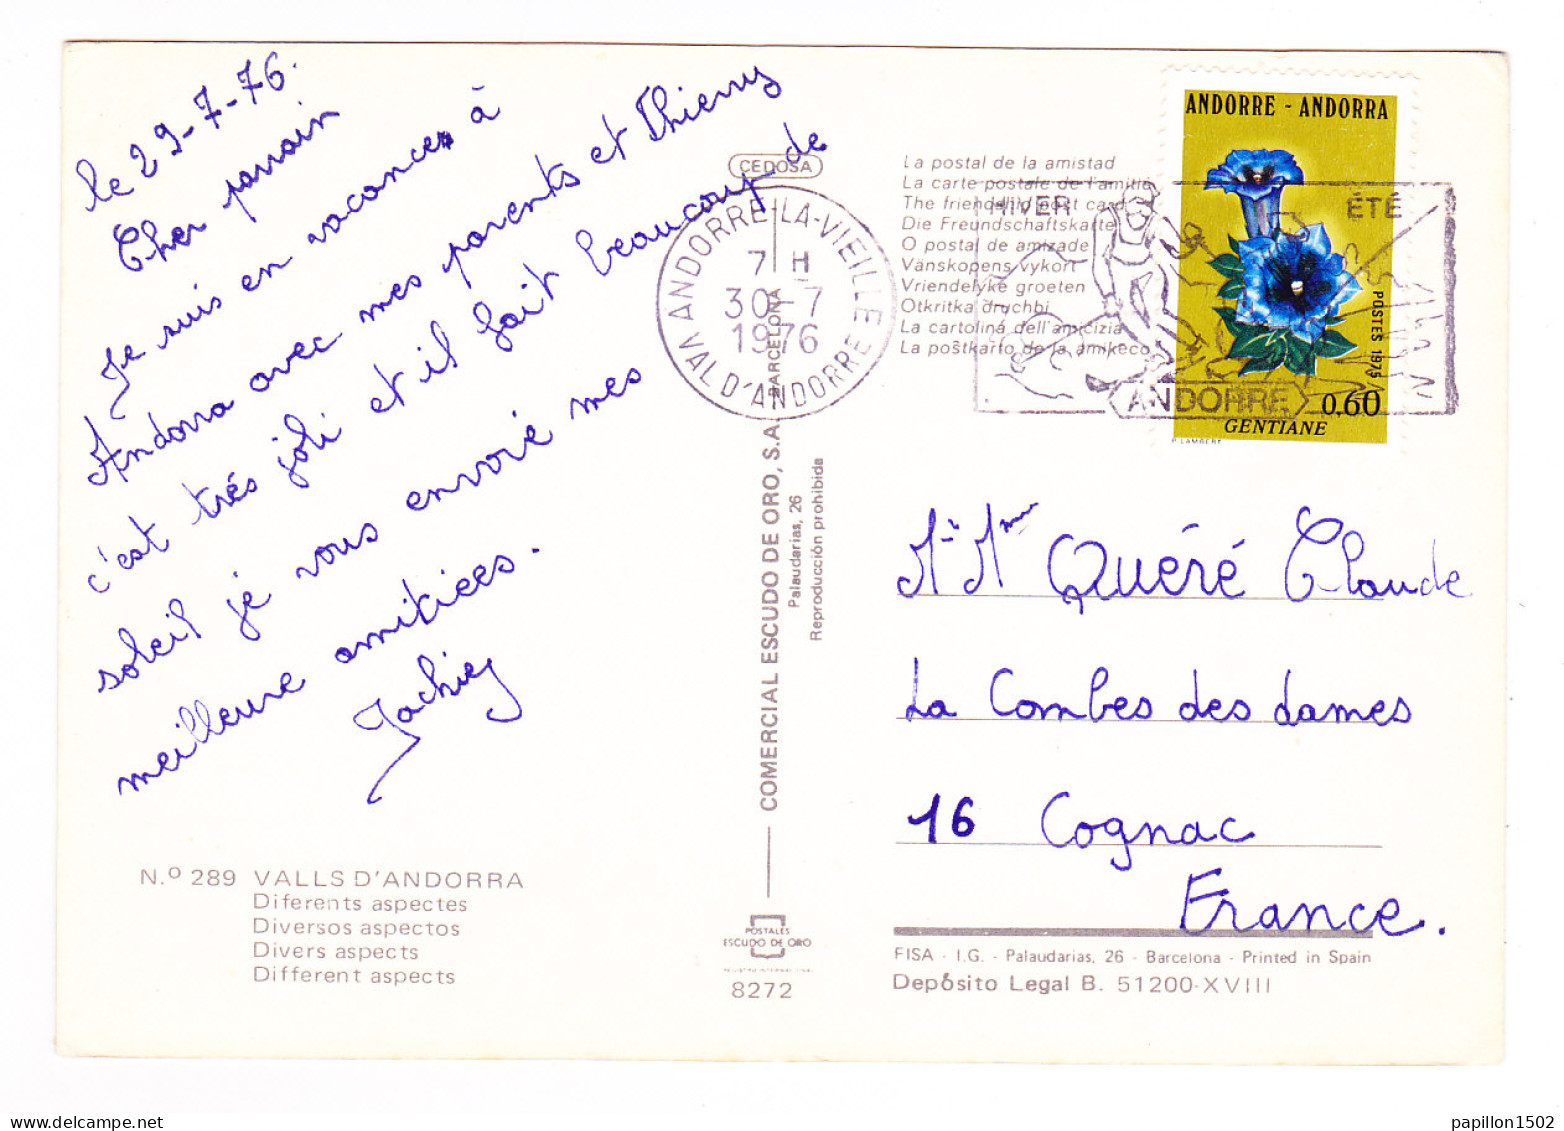 le 29-7-76.
Cher parrain
Je suis en vacances à
Andorra avec mes parents et Thierry
c'est trés joli et il fait beaucoup de
soleil je vous envoie mes
meilleure amitiees.
Jackiey
N.º 289 VALLS D'ANDORRA
Diferents aspectes
Diversos aspectos
Divers aspects
Different aspects
CEDOSA
COMERCIAL ESCUDO DE ORO, S.A. BARCELONA
Palaudarias, 26
Reproducción prohibida
POSTALES
ESCUDO DE ORO
REGISTRO INTERNACIONAL
8272
La postal de la amistad
La carte postale de l'amitié
The friendship post card
Die Freundschaftskarte
O postal de amizade
Vänskopens vykort
Vriendelyke groeten
Otkritka druchbi
La cartolina dell'amicizia
La poŝtkarto de la amikeco
ANDORRE-LA-VIEILLE
7 H
30-7
1976
VAL D'ANDORRE
HIVER
ÉTÉ
ANDORRE
ANDORRE - ANDORRA
POSTES 1975
0,60
GENTIANE
P. LAMBERT
Mr Mme Quéré Claude
La Combes des dames
16 Cognac
France.
FISA - I.G. - Palaudarias, 26 - Barcelona - Printed in Spain
Depósito Legal B. 51200-XVIII
papillon1502